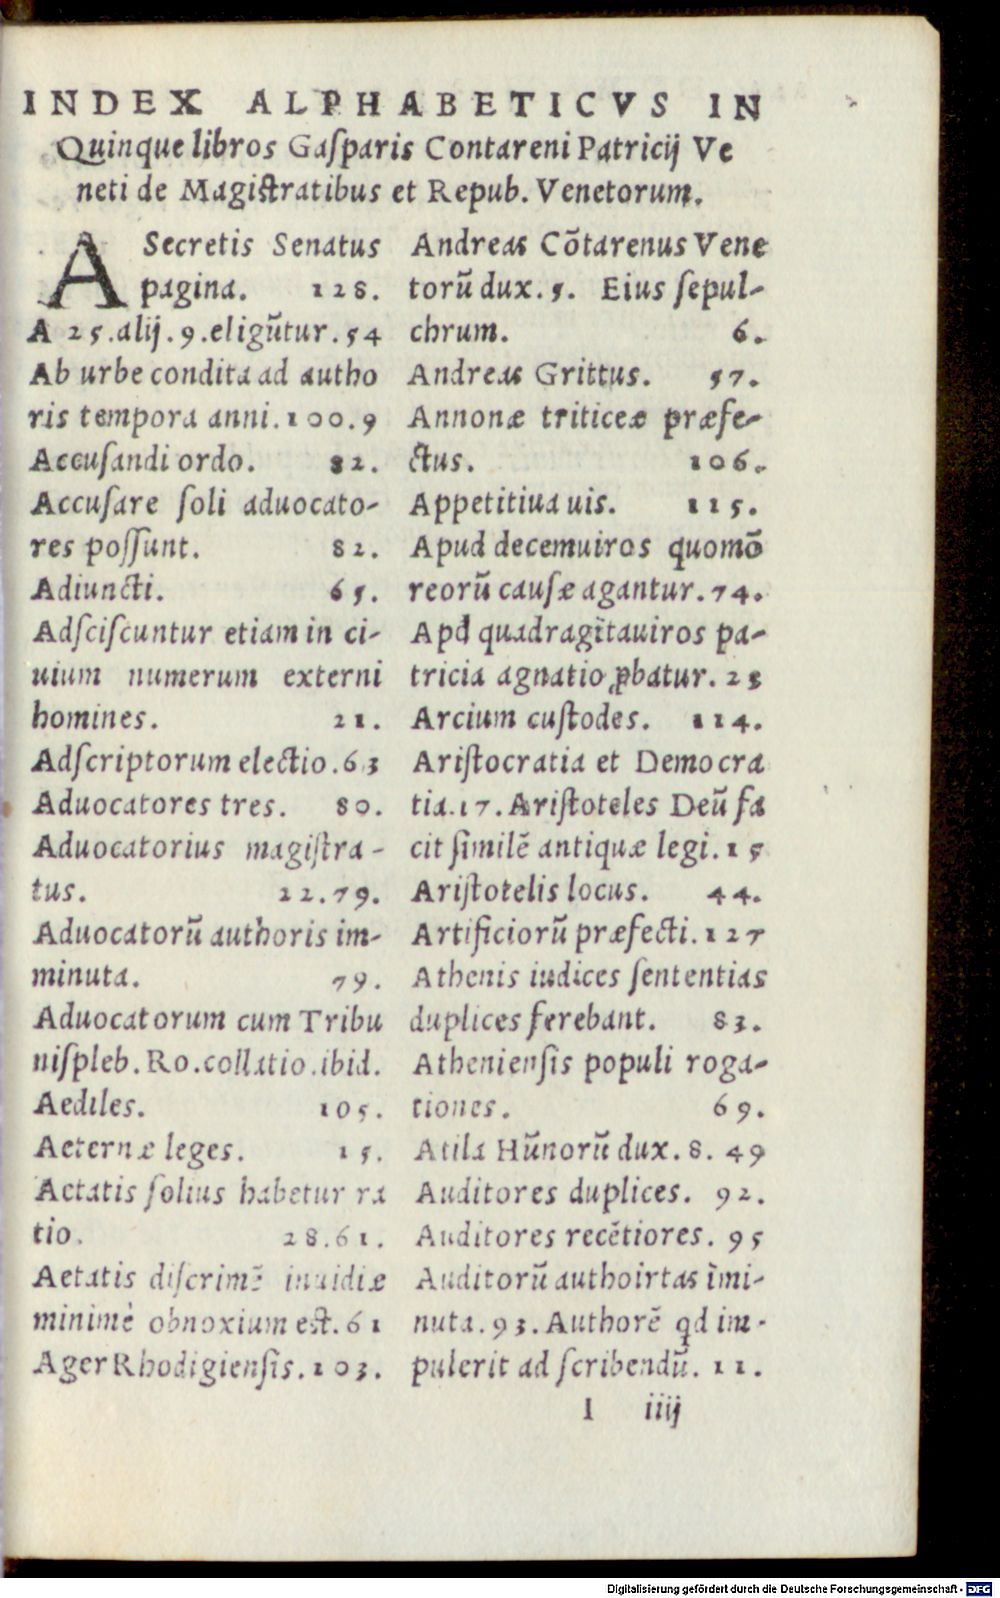 INDEX ALPHABETICVS IN
Quinque libros Gaſparis Contareni Patricij Ve
neti de Magiſtratibus et Repub. Venetorum.
A Secretis Senatus
pagina. 128.
A 25.alij.9.eligũtur.54
Ab urbe condita ad autho
ris tempora anni.100.9
Accuſandi ordo. 82.
Accuſare ſoli aduocato-
res poſſunt. 82.
Adiuncti. 65.
Adſciſcuntur etiam in ci-
uium numerum externi
homines. 21.
Adſcriptorum electio.63
Aduocatores tres. 80.
Aduocatorius magiſtra-
tus. 22.79.
Aduocatorũ authoris im-
minuta. 79.
Aduocatorum cum Tribu
niſpleb.Ro.collatio.ibid.
Aediles. 105.
Aeternæ leges. 15.
Aetatis ſolius habetur ra
tio. 28.61.
Aetatis diſcrimẽ inuidiæ
minimè obnoxium est.61
Ager Rhodigienſis.103.
Andreas Cõtarenus Vene
torũ dux.5. Eius ſepul-
chrum. 6.
Andreas Grittus. 57.
Annonæ triticeæ præfe-
ctus. 106.
Appetitiua uis. 115.
Apud decemuiros quomõ
reorũ cauſæ agantur.74.
Apd quadragĩtauiros pa-
tricia agnatio ꝓbatur.23
Arcium cuſtodes. 114.
Ariſtocratia et Democra
tia.17.Ariſtoteles Deũ fa
cit ſimilẽ antiquæ legi.15
Ariſtotelis locus. 44.
Artificiorũ præfecti.127
Athenis iudices ſententias
duplices ferebant. 83.
Athenienſis populi roga-
tiones. 69.
Atila Hũnorũ dux.8.49
Auditores duplices. 92.
Auditores recẽtiores. 95
Auditorũ authoirtas ĩmi-
nuta.93.Authorẽ qd im-
pulerit ad ſcribendũ. 11.
I iiij
Digitalisierung gefördert durch die Deutsche Forschungsgemeinschaft - DFG